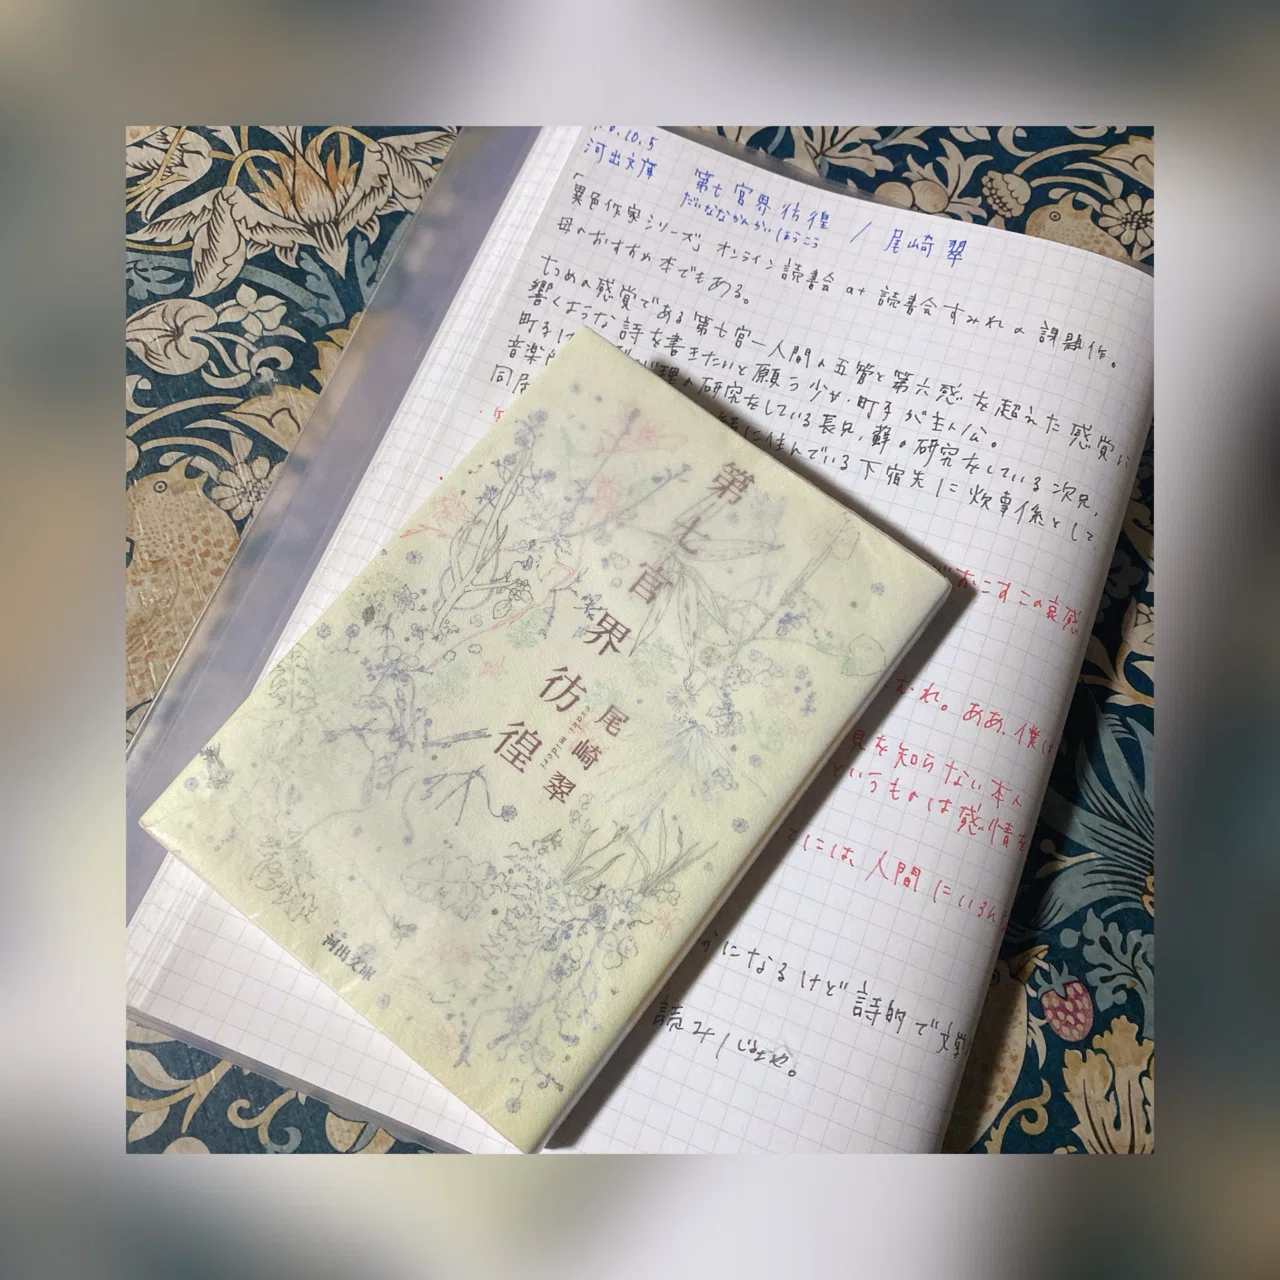 .10.5
河出文庫
第七官界彷徨 / 尾崎翠
だいななかんかいほうこう
「異色作家シリーズ」オンライン読書会 at 読書会すみれの課題作。
母のおすすめ本でもある。
七つめの感覚である第七官—人間の五管と第六感を超えた感覚に
響くような詩を書きたいと願う少女・町子が主人公。
町子は
理の研究をしている長兄、蘚の研究をしている次兄、
音楽
緒に住んでいる下宿先に炊事係として
同居
おこすこの哀感
むれ。ああ、僕は
を知らない本人
というものは感情を
には、人間にいろん
になるけど詩的で
読み
第七官界彷徨
尾崎翠
osaki midori
河出文庫